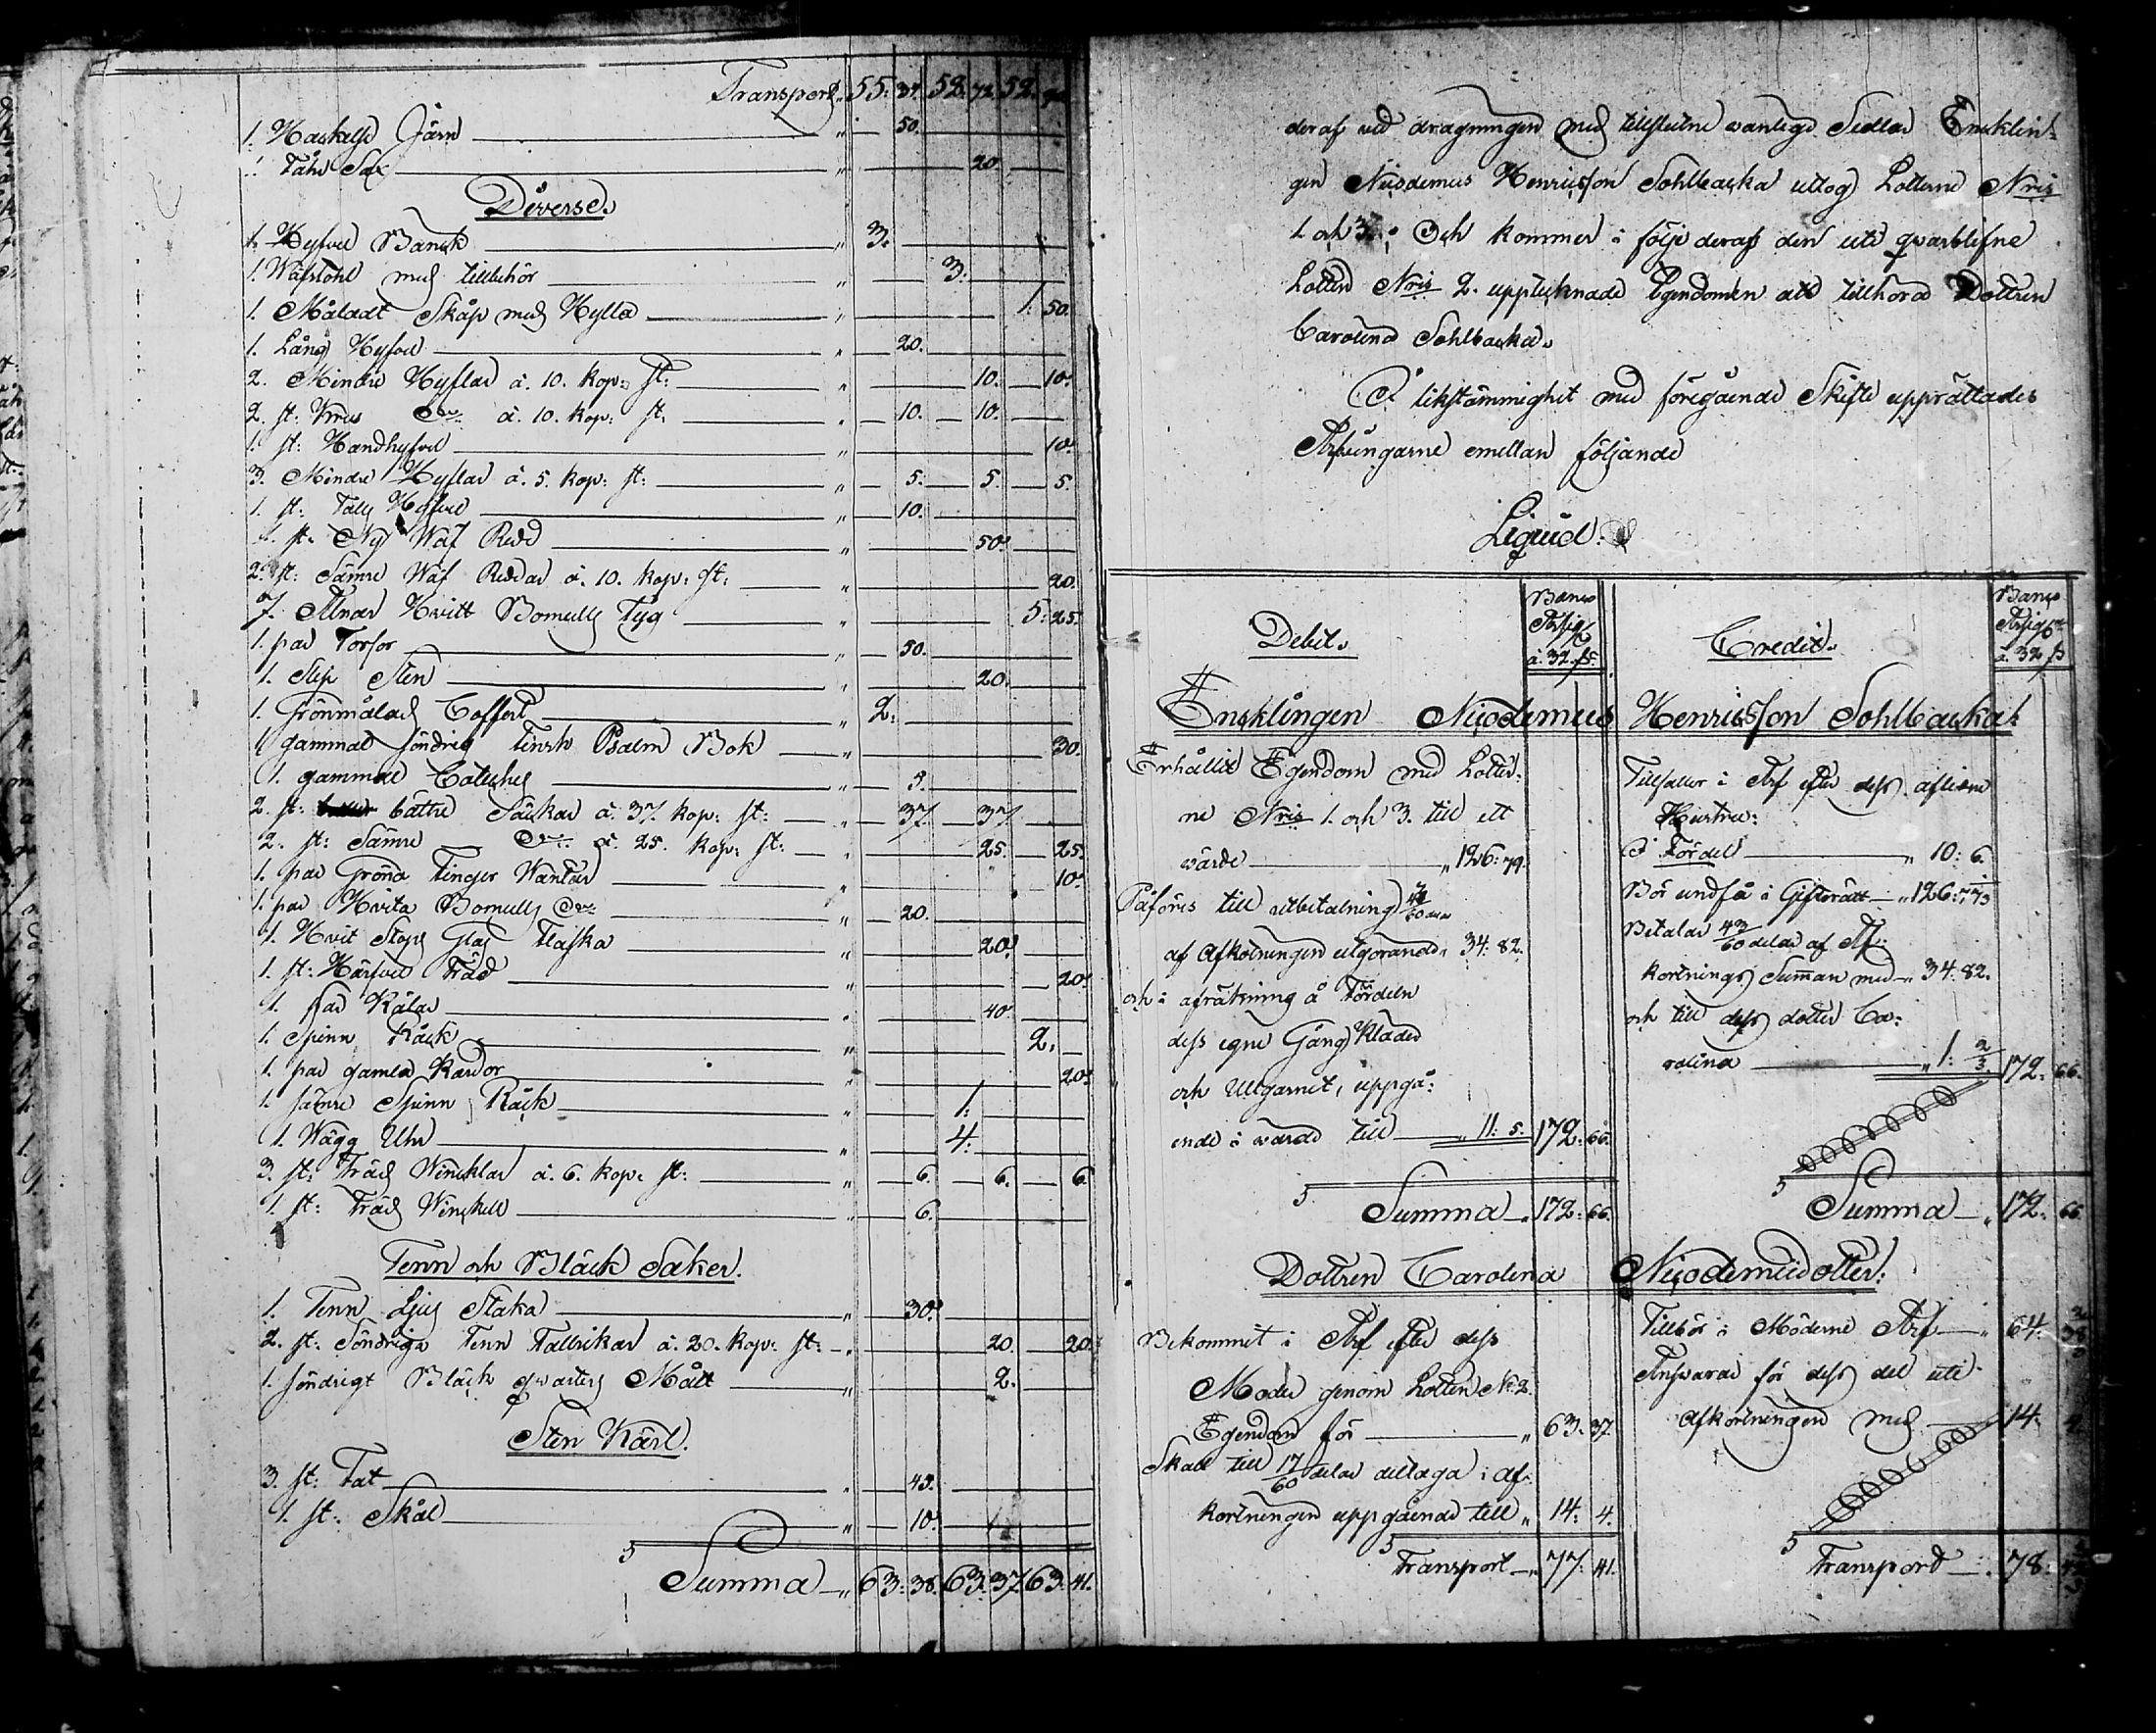 Transport „ 55: 37. 52. 72. 52.
1. Hackelse Järn — „ 50.
1. Fåhr Sax — „ 20.
Diverse.
1. Hyfvel Bänck — „ 3.
1. Wäfstohl med tillbehör — „ 3.
1. Måladt Skåp med Hylla — „ 1: 50.
1. Lång Hyfvel — „ 20.
2. Mindre Hyflar á. 10. kop: st: — „ 10. — 10.
2. st: d:o á. 10. kop: st: — „ 10. — 10.
1. st: Handhyfvel — „ 10.
3. Mindre Hyflar á. 5. kop: st: — „ 5. — 5. — 5.
1. st: Hyfvel — „ 10.
1. st. Ny Wäf Red — „ 50.
2. st: Sämre Wäf Redar á. 10. kop: st: — „ 20.
7. Alnar Hvitt Bomulls Tyg — „ 5: 25.
1. par — „ 50.
1. Slip Sten — „ 20.
1. Grönmålad Coffert — „ 2:
1 gammal söndrig Finsk Psalm Bok — „ 30.
1. gammal Cateches — „ 5.
2. st: bättre Säckar á. 37. kop: st: — „ 37. — 37.
2. st: Sämre d:o á. 25. kop: st: — „ 25. — 25.
1. par Gröna Finger Wantar — „ 10.
1. par Hvita Bomulls d:o — „ 20.
1. Hvit Stops Glas Flaska — „ 20.
1. st: Träd — „ 20.
1. — „ 40.
1. Spinn Råck — „ 2.
1. par gamla Kardor — „ 20.
1. sämre Spinn Råck — „ 1.
1. Wägg Uhr — „ 4.
3. st: Träd Wincklar á. 6. kop: st: — „ 6. — 6. — 6.
1. st: Träd Winckel — „ 6.
Tenn och Bläck Saker.
1. Tenn Ljus Staka — „ 30.
2. st: Söndriga Tenn Tallrikar á. 20. kop: st: — „ 20. — 20.
1. söndrigt Bläck qvarters Mått — „ 2.
Sten Kärl.
3. st: Fat — „ 43.
1. st: Skål — „ 10.
Summa — „ 63: 38. 63: 37. 63: 41.
deraf vid dragningen med tillslutne vanlige Sedlar Encklin-
gen Nicodemus Henricsson Sohlbacka uttog Lotterne Nris
1. och 3. Och kommer i följe deraf den uti qvarblifne
Lotten Nris 2. upptecknade Egendomen att tillhöra Dottren
Carolina Sohlbacka.
I likstämmighet med föregående Skifte upprättades
Arfvingarne emellan följande
Liquid.
Debet.
Banco
á. 32. ß:
Credit.
Banco
á. 32 ß
Encklingen Nicodemus Henricsson Sohlbacka:
Erhållit Egendom med Lotter-
ne Nris 1. och 3. till ett
värde — „ 126: 79.
Påföres till utbetalning 43/60 delar
af Afkortningen utgörande „ 34: 82.
och i afräkning å Fördeln
dess egne Gång Kläder
och Ullgarnet, uppgå-
ende i värde till — „ 11: 5. 172: 66.
Summa — „ 172: 66.
Tillfaller i Arf efter dess aflidne
Hustru:
I Fördel — „ 10: 6.
Bör undfå i Giftorätt — „ 126:
Betalar 43/60 delar af Af-
kortnings Summan med „ 34: 82.
och till dess dotter Ca-
rolina — „ 1: 2/3. 172: 66.
Summa — „ 172: 66.
Dottren Carolina Nicodemidotter:
Bekommit i Arf efter dess
Moder genom Lotten No 2.
Egendom för — „ 63: 37.
Skall till 17/60 delar deltaga i af-
kortningen uppgående till „ 14: 4.
Transport — „ 77: 41.
Tillkör i Möderne Arf — „ 64:
Ansvarar för dess del uti
afkortningen med — 14: 4.
Transport — „ 78: